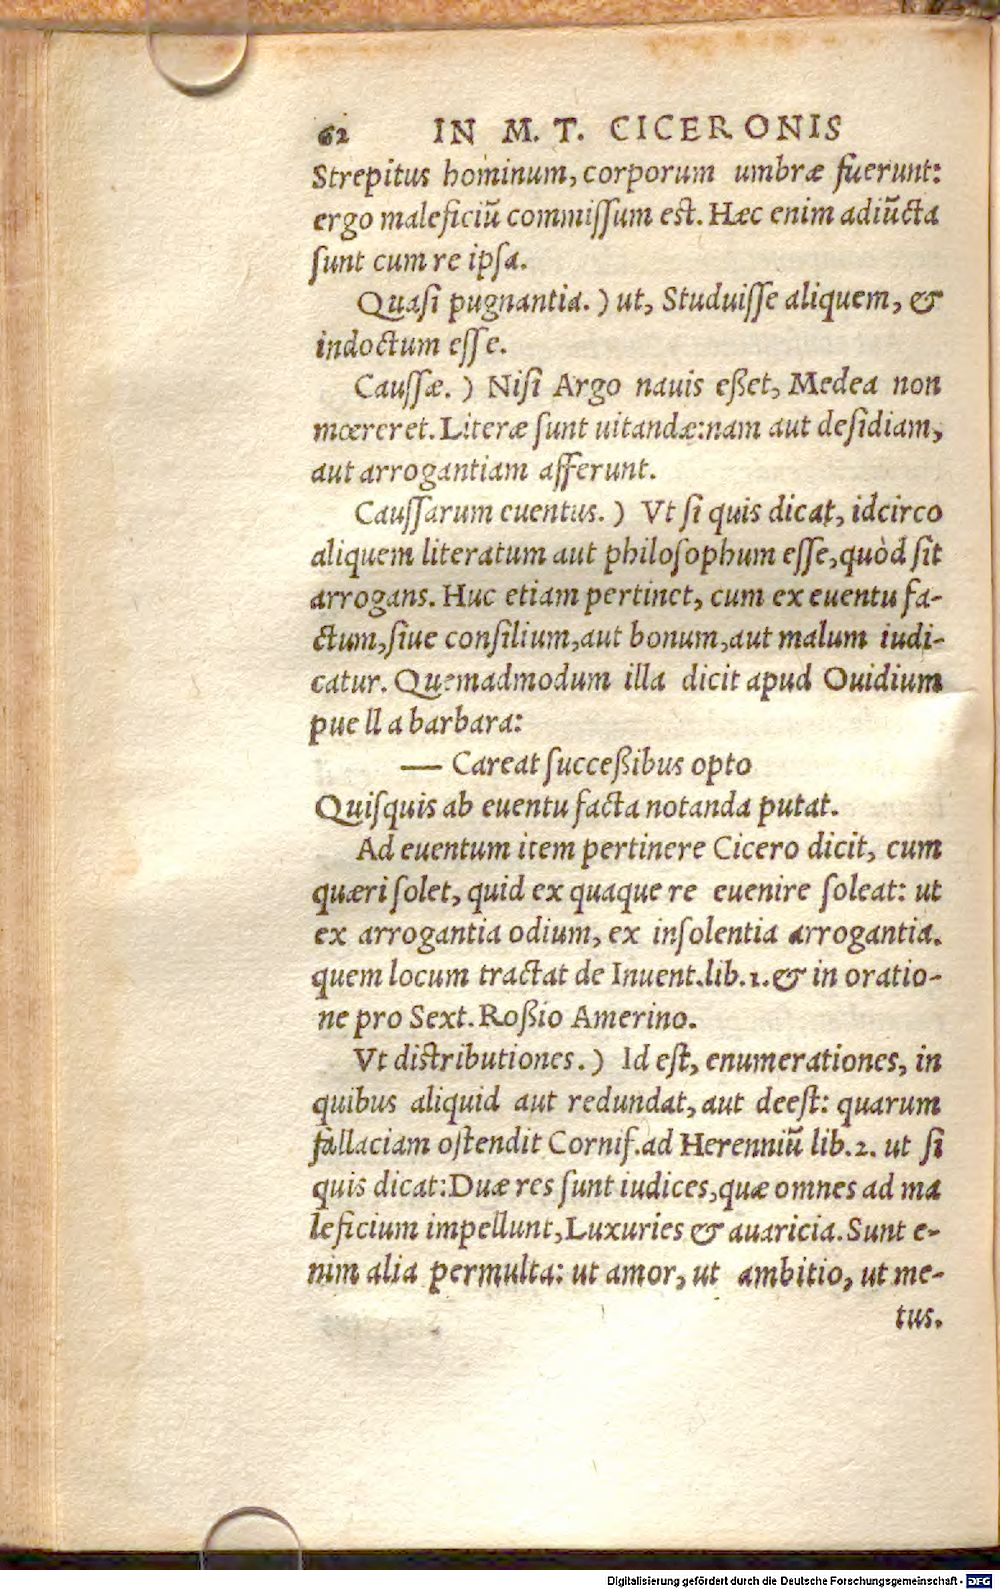 62 IN M. T. CICERONIS
Strepitus hominum, corporum umbræ fuerunt:
ergo maleficiũ commiſſum eſt. Hæc enim adiũcta
ſunt cum re ipſa.
Quaſi pugnantia.) ut, Studuiſſe aliquem, &
indoctum eſſe.
Cauſſæ.) Niſi Argo nauis eßet, Medea non
mœreret. Literæ ſunt uitandæ:nam aut deſidiam,
aut arrogantiam afferunt.
Cauſſarum euentus.) Vt ſi quis dicat, idcirco
aliquem literatum aut philoſophum eſſe, quòd ſit
arrogans. Huc etiam pertinet, cum ex euentu fa-
ctum, ſiue conſilium, aut bonum, aut malum iudi-
catur. Quemadmodum illa dicit apud Ouidium
puella barbara:
— Careat ſucceßibus opto
Quiſquis ab euentu facta notanda putat.
Ad euentum item pertinere Cicero dicit, cum
quæri ſolet, quid ex quaque re euenire ſoleat: ut
ex arrogantia odium, ex inſolentia arrogantia.
quem locum tractat de Inuent.lib.1.& in oratio-
ne pro Sext. Roßio Amerino.
Vt diſtributiones.) Id eſt, enumerationes, in
quibus aliquid aut redundat, aut deeſt: quarum
fallaciam oſtendit Cornif.ad Herenniũ lib.2. ut ſi
quis dicat:Duæ res ſunt iudices,quæ omnes ad ma
leficium impellunt, Luxuries & auaricia. Sunt e-
nim alia permulta: ut amor, ut ambitio, ut me-
tus.
Digitalisierung gefördert durch die Deutsche Forschungsgemeinschaft - DFG